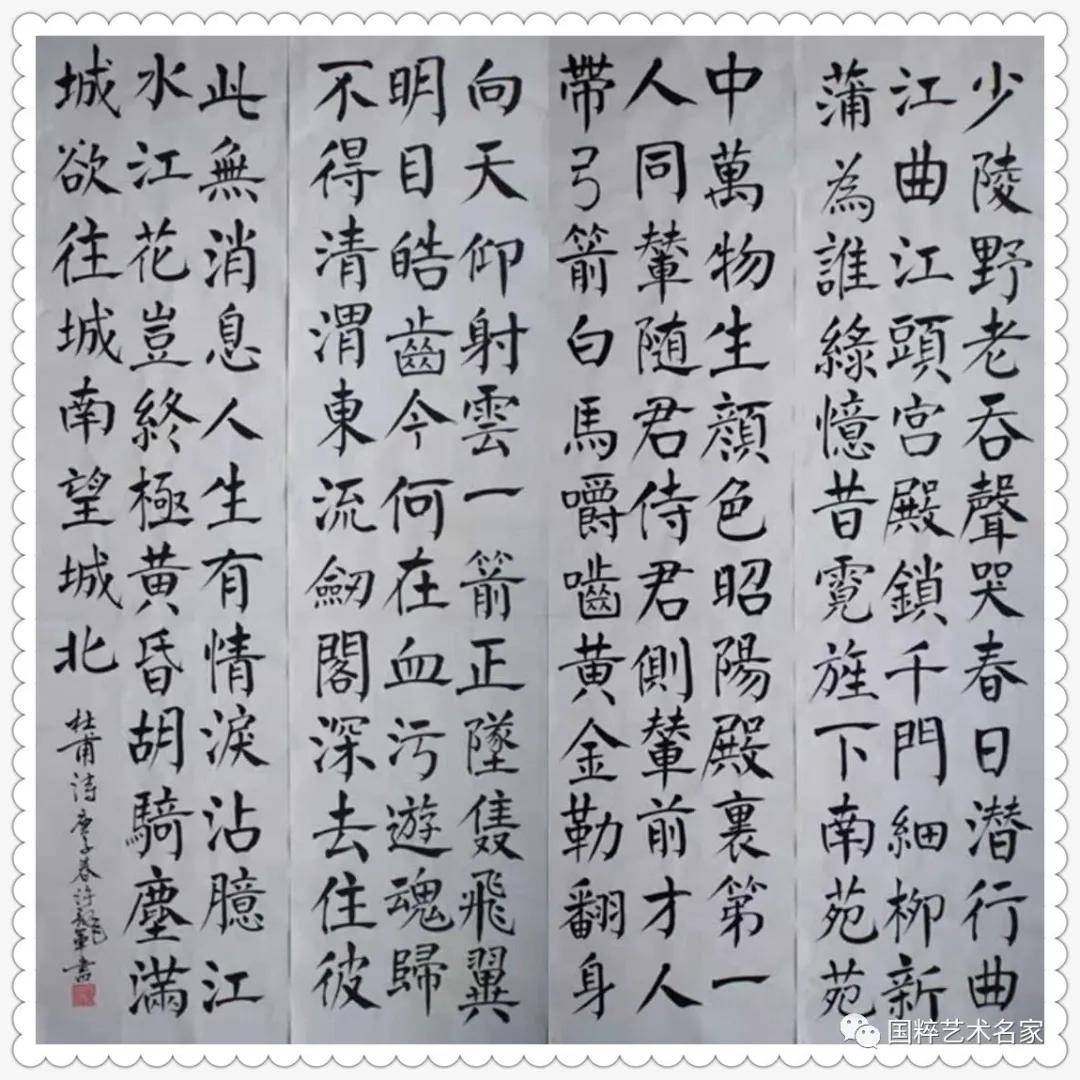 少陵野老吞聲哭春日潜行曲
江曲江頭宮殿鎖千門細柳新
蒲為誰綠憶昔霓旌下南苑苑
中萬物生顔色昭陽殿裏第一
人同輦随君侍君側輦前才人
帶弓箭白馬嚼嚙黄金勒翻身
向天仰射雲一箭正墜隻飛翼
明目皓齒今何在血污遊魂歸
不得清渭東流劒閣深去住彼
此無消息人生有情淚沾臆江
水江花豈終極黄昏胡騎塵滿
城欲往城南望城北
杜甫詩庚子春許軍書
国粹艺术名家